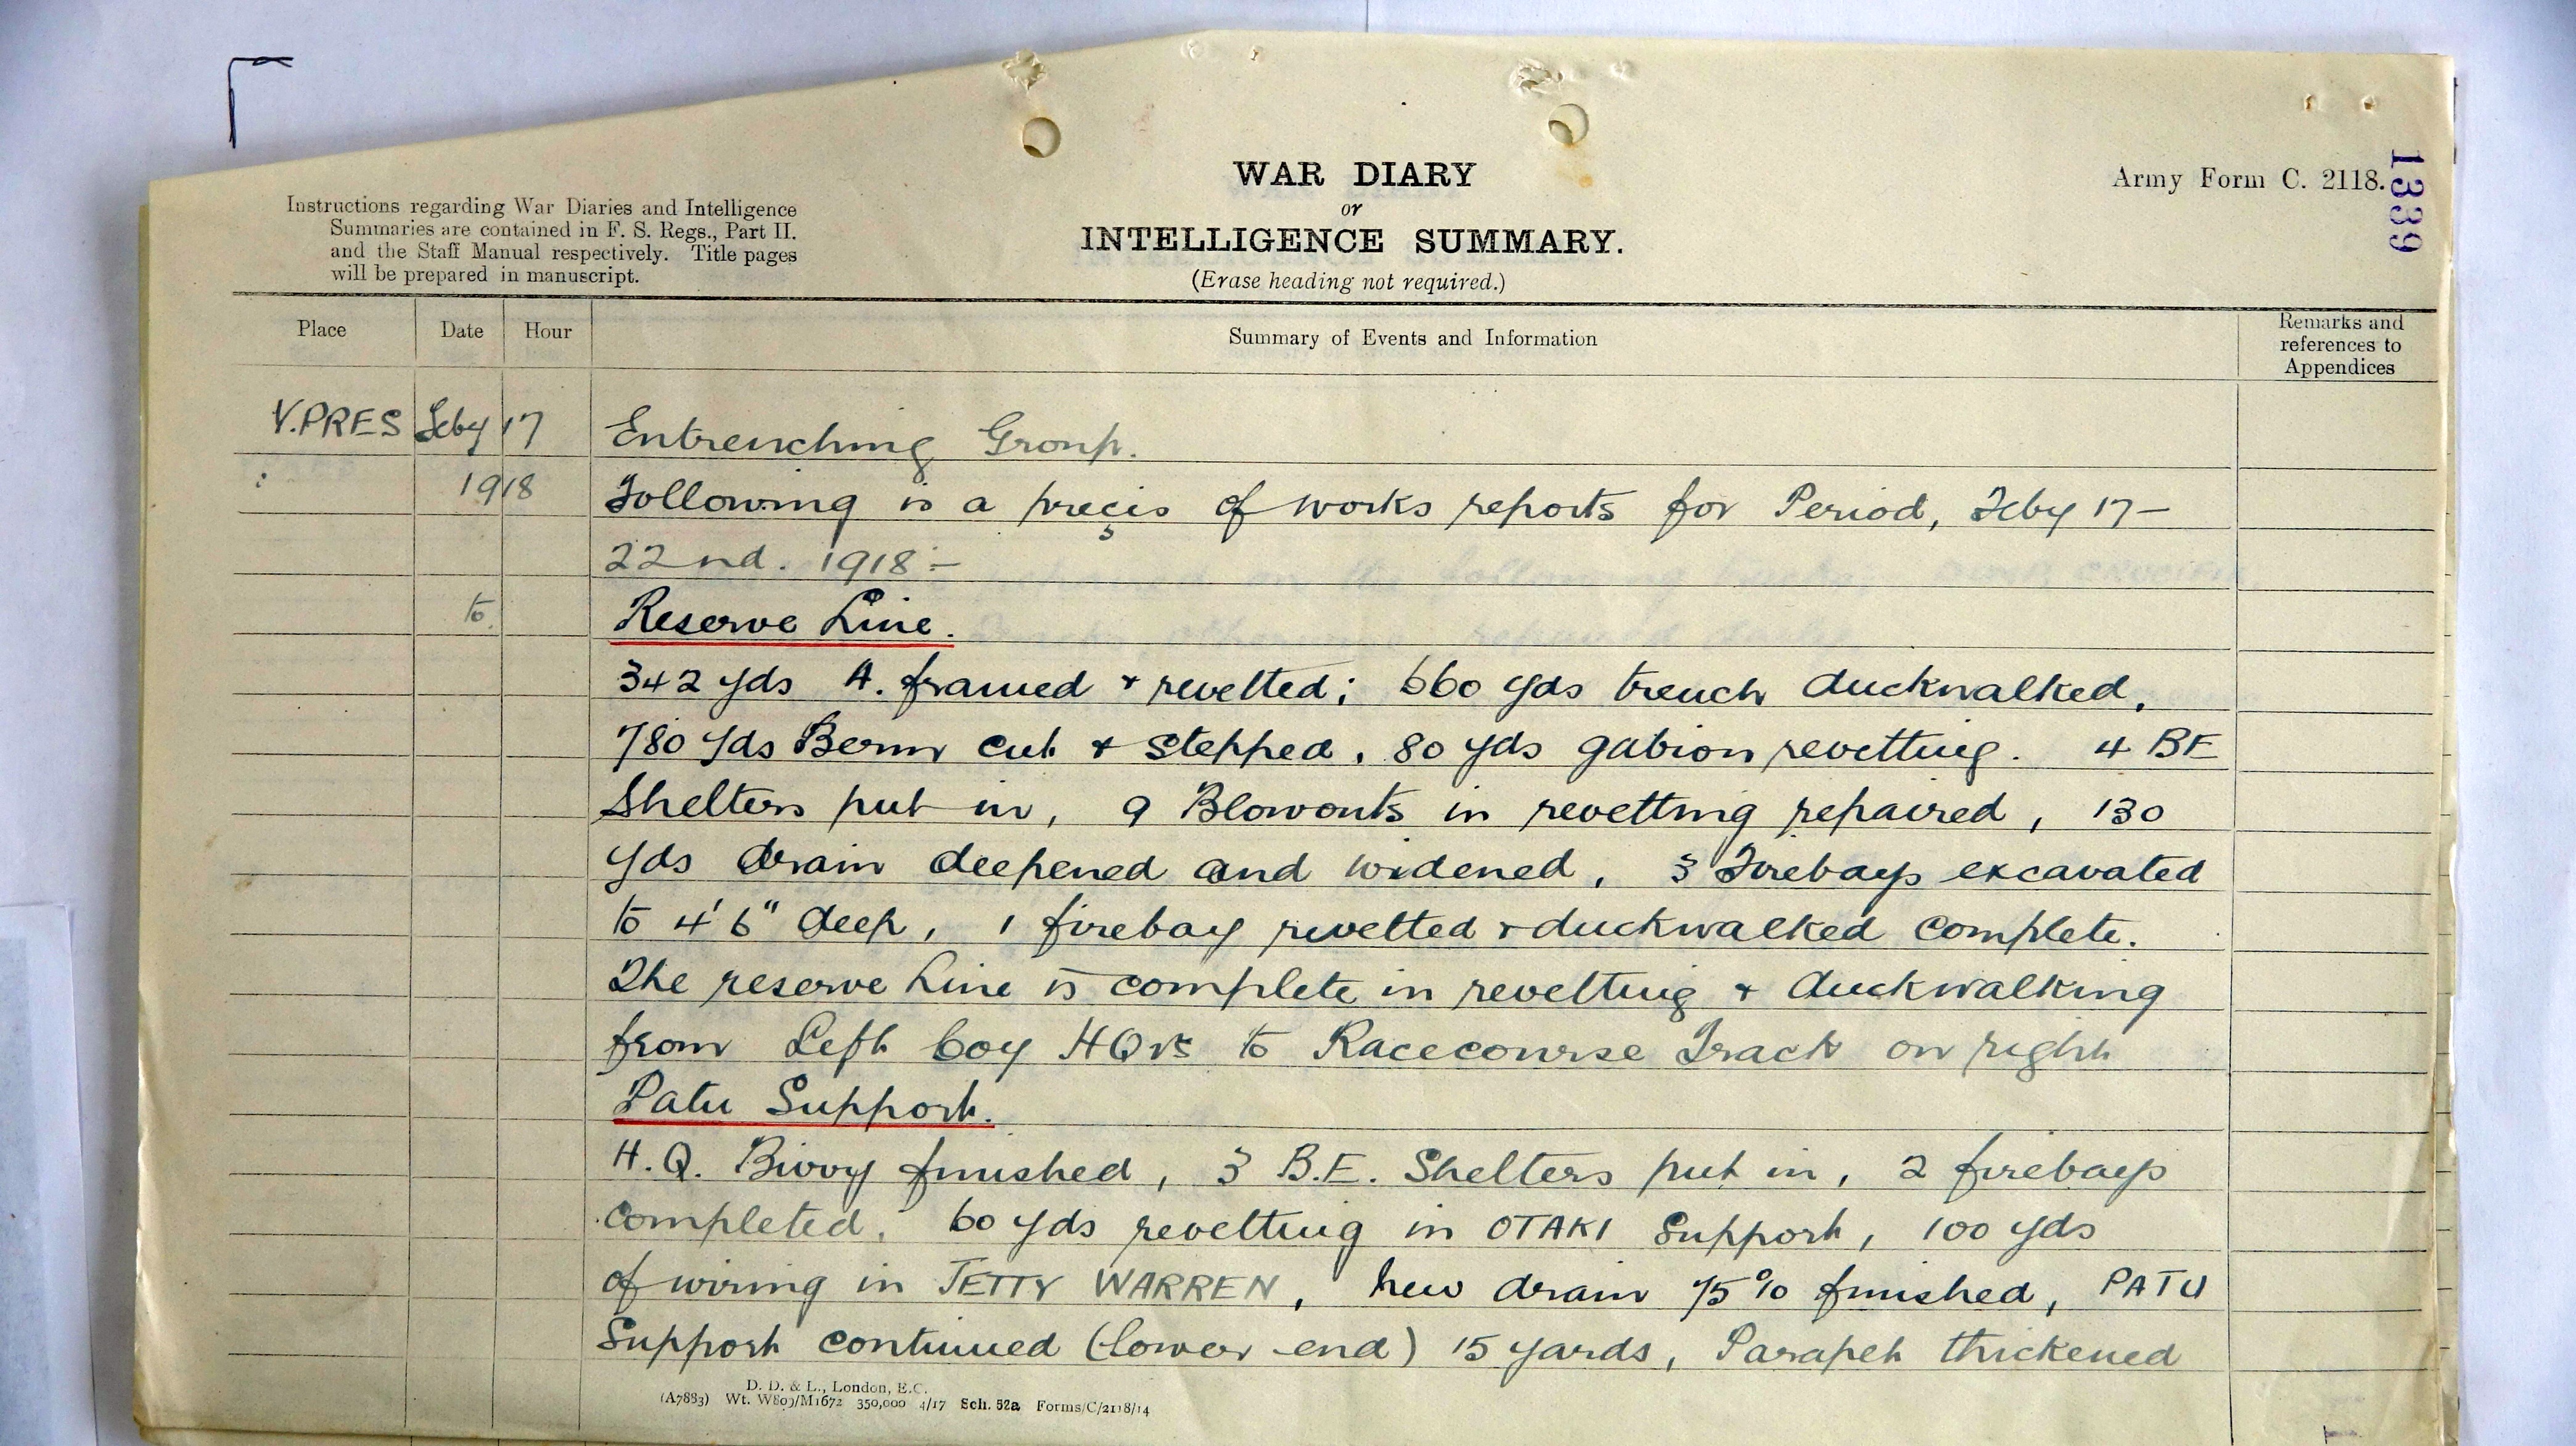 WAR DIARY
or
INTELLIGENCE SUMMARY.
(Erase heading not required.)
Army Form C. 2118.
1339
Instructions regarding War Diaries and Intelligence
Summaries are contained in F. S. Regs., Part II.
and the Staff Manual respectively. Title pages
will be prepared in manuscript.
Place Date Hour Summary of Events and Information Remarks and references to Appendices
Y.PRES Feby 17 Entrenching Group.
1918 Following is a precis of works reports for Period, Feby 17-
22nd. 1918:-
to. Reserve Line.
342 yds A. framed & revetted; 660 yds trench duckwalked,
780 yds Berm cut & stepped, 80 yds gabion revetting. 4 BE
Shelters put in, 9 Blowouts in revetting repaired, 130
yds drain deepened and widened, 3 Firebays excavated
to 4'6" deep, 1 firebay revetted & duckwalked complete.
The reserve Line is complete in revetting & duckwalking
from Left Coy HQrs to Racecourse Track on right
Patu Support.
H.Q. Bivvy finished, 3 B.E. Shelters put in, 2 firebays
completed, 60 yds revetting in OTAKI Support, 100 yds
of wiring in JETTY WARREN, new drain 75% finished, PATU
Support continued (lower end) 15 yards, Parapet thickened
D. D. & L., London, E.C.
(A7883) Wt. W809/M1672 350,000 4/17 Sch. 52a Forms/C/2118/14